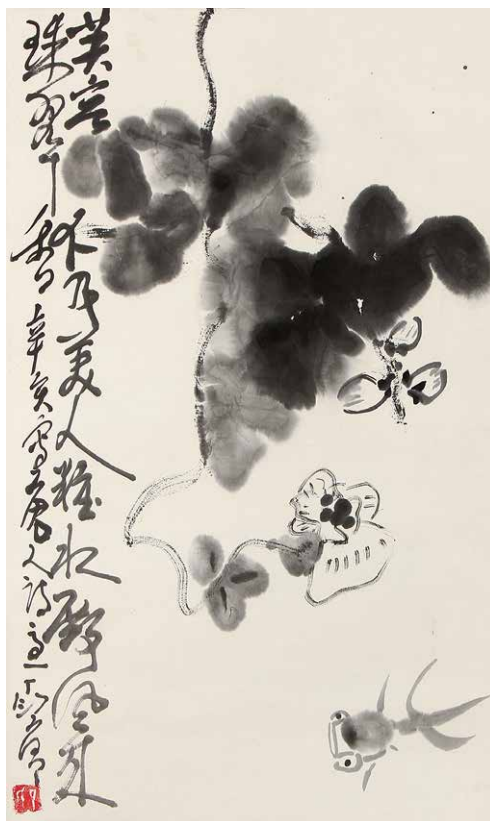 芙蓉不及美人粧水殿風來
珠翠香 辛亥寫唐人詩意 丁衍庸